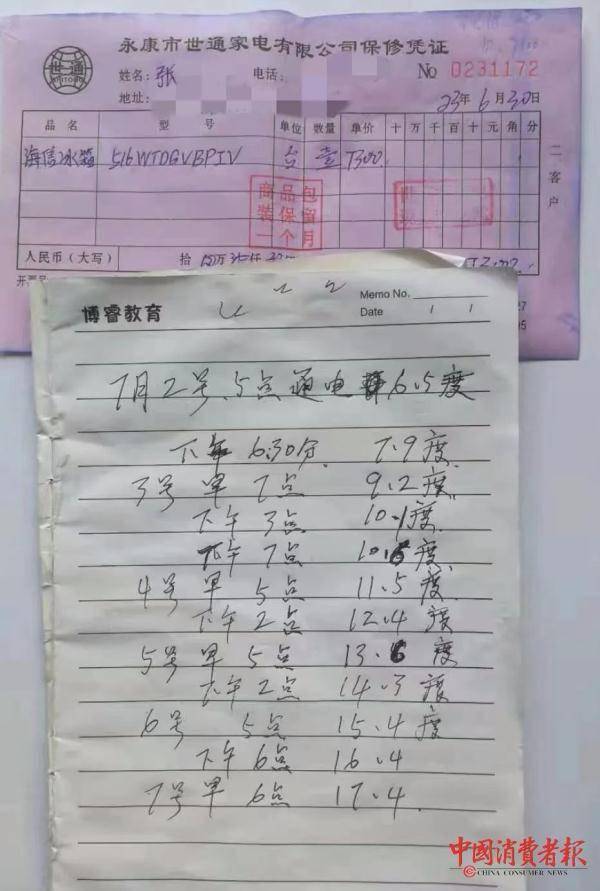 永康市世通家电有限公司保修凭证
世通
SHITONG
姓名:张 电话:
No 0231172
地址:
23年6月30日
品名 型号 单位 数量 单价 十 万 千 百 十 元 角 分
海信冰箱 516WTDGVBPIV 台 壹 7300
二 客户
商品包
装保留
一个月
人民币(大写) 拾
博睿教育
Memo No.
Date / /
7月2号、5点通电 6.5度
下午 6.30分 7.9度
3号早7点 9.2度
下午3点 10.1度
下午7点 10.6度
4号早5点 11.5度
下午2点 12.4度
5号早5点 13.6度
下午2点 14.3度
6号 5点 15.4度
下午6点 16.4
7号早6点 17.4
中国消费者报
CHINA CONSUMER NEWS